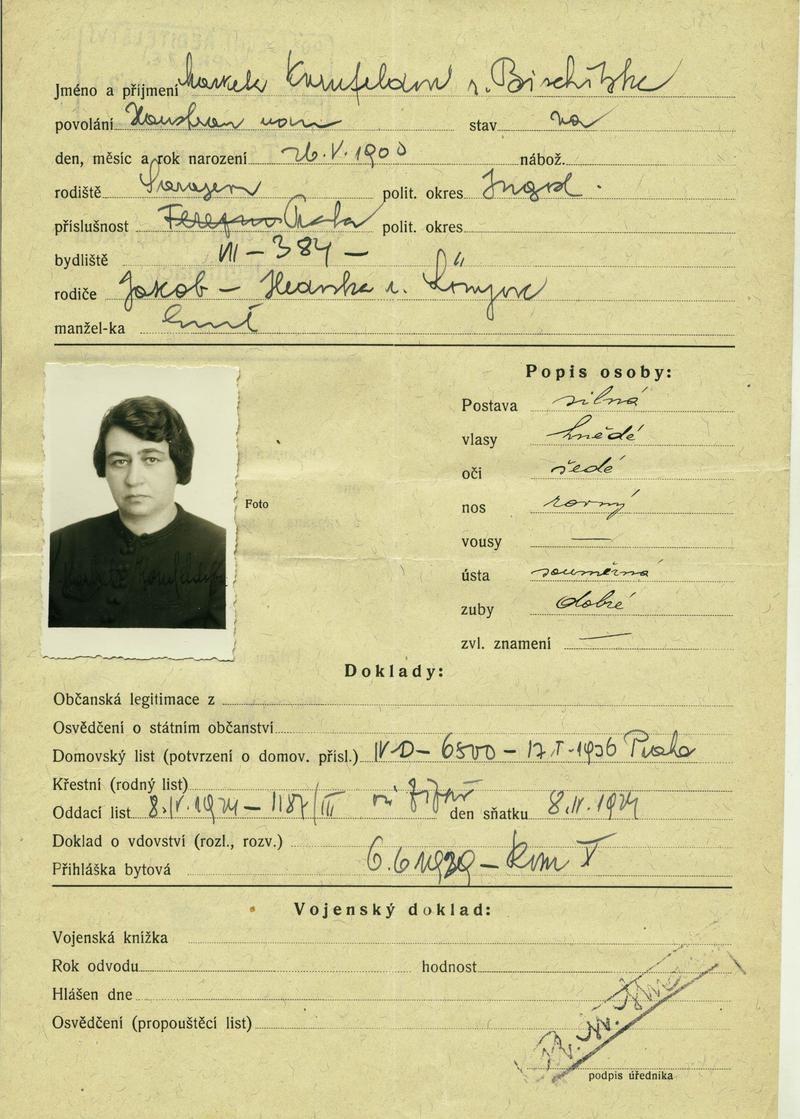 Jméno a příjmení
povolání stav
den, měsíc a rok narození 26.V.1900 nábož.
rodiště polit. okres
příslušnost Praha polit. okres
bydliště VII – 384 –
rodiče Jakob –
manžel-ka
Popis osoby:
Postava silná
vlasy hnědé
oči šedé
Foto
nos rovný
vousy —
ústa souměrná
zuby dobré
zvl. znamení —
Doklady:
Občanská legitimace z
Osvědčení o státním občanství
Domovský list (potvrzení o domov. přísl.) IV-D – 6500 – 17.I.1936 Praha
Křestní (rodný list)
Oddací list 8.IV.1924 – 1187/III den sňatku 8.IV.1924
Doklad o vdovství (rozl., rozv.)
Přihláška bytová 6.6.1939 – kom V
Vojenský doklad:
Vojenská knížka
Rok odvodu hodnost
Hlášen dne
Osvědčení (propouštěcí list)
podpis úředníka